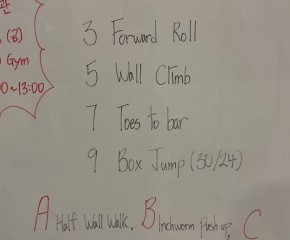 관
(금)
Gym
0~13:00
3 Forward Roll
5 Wall Climb
7 Toes to bar
9 Box Jump (30/24)
A Half Wall Walk, B Inchworm Push up, C